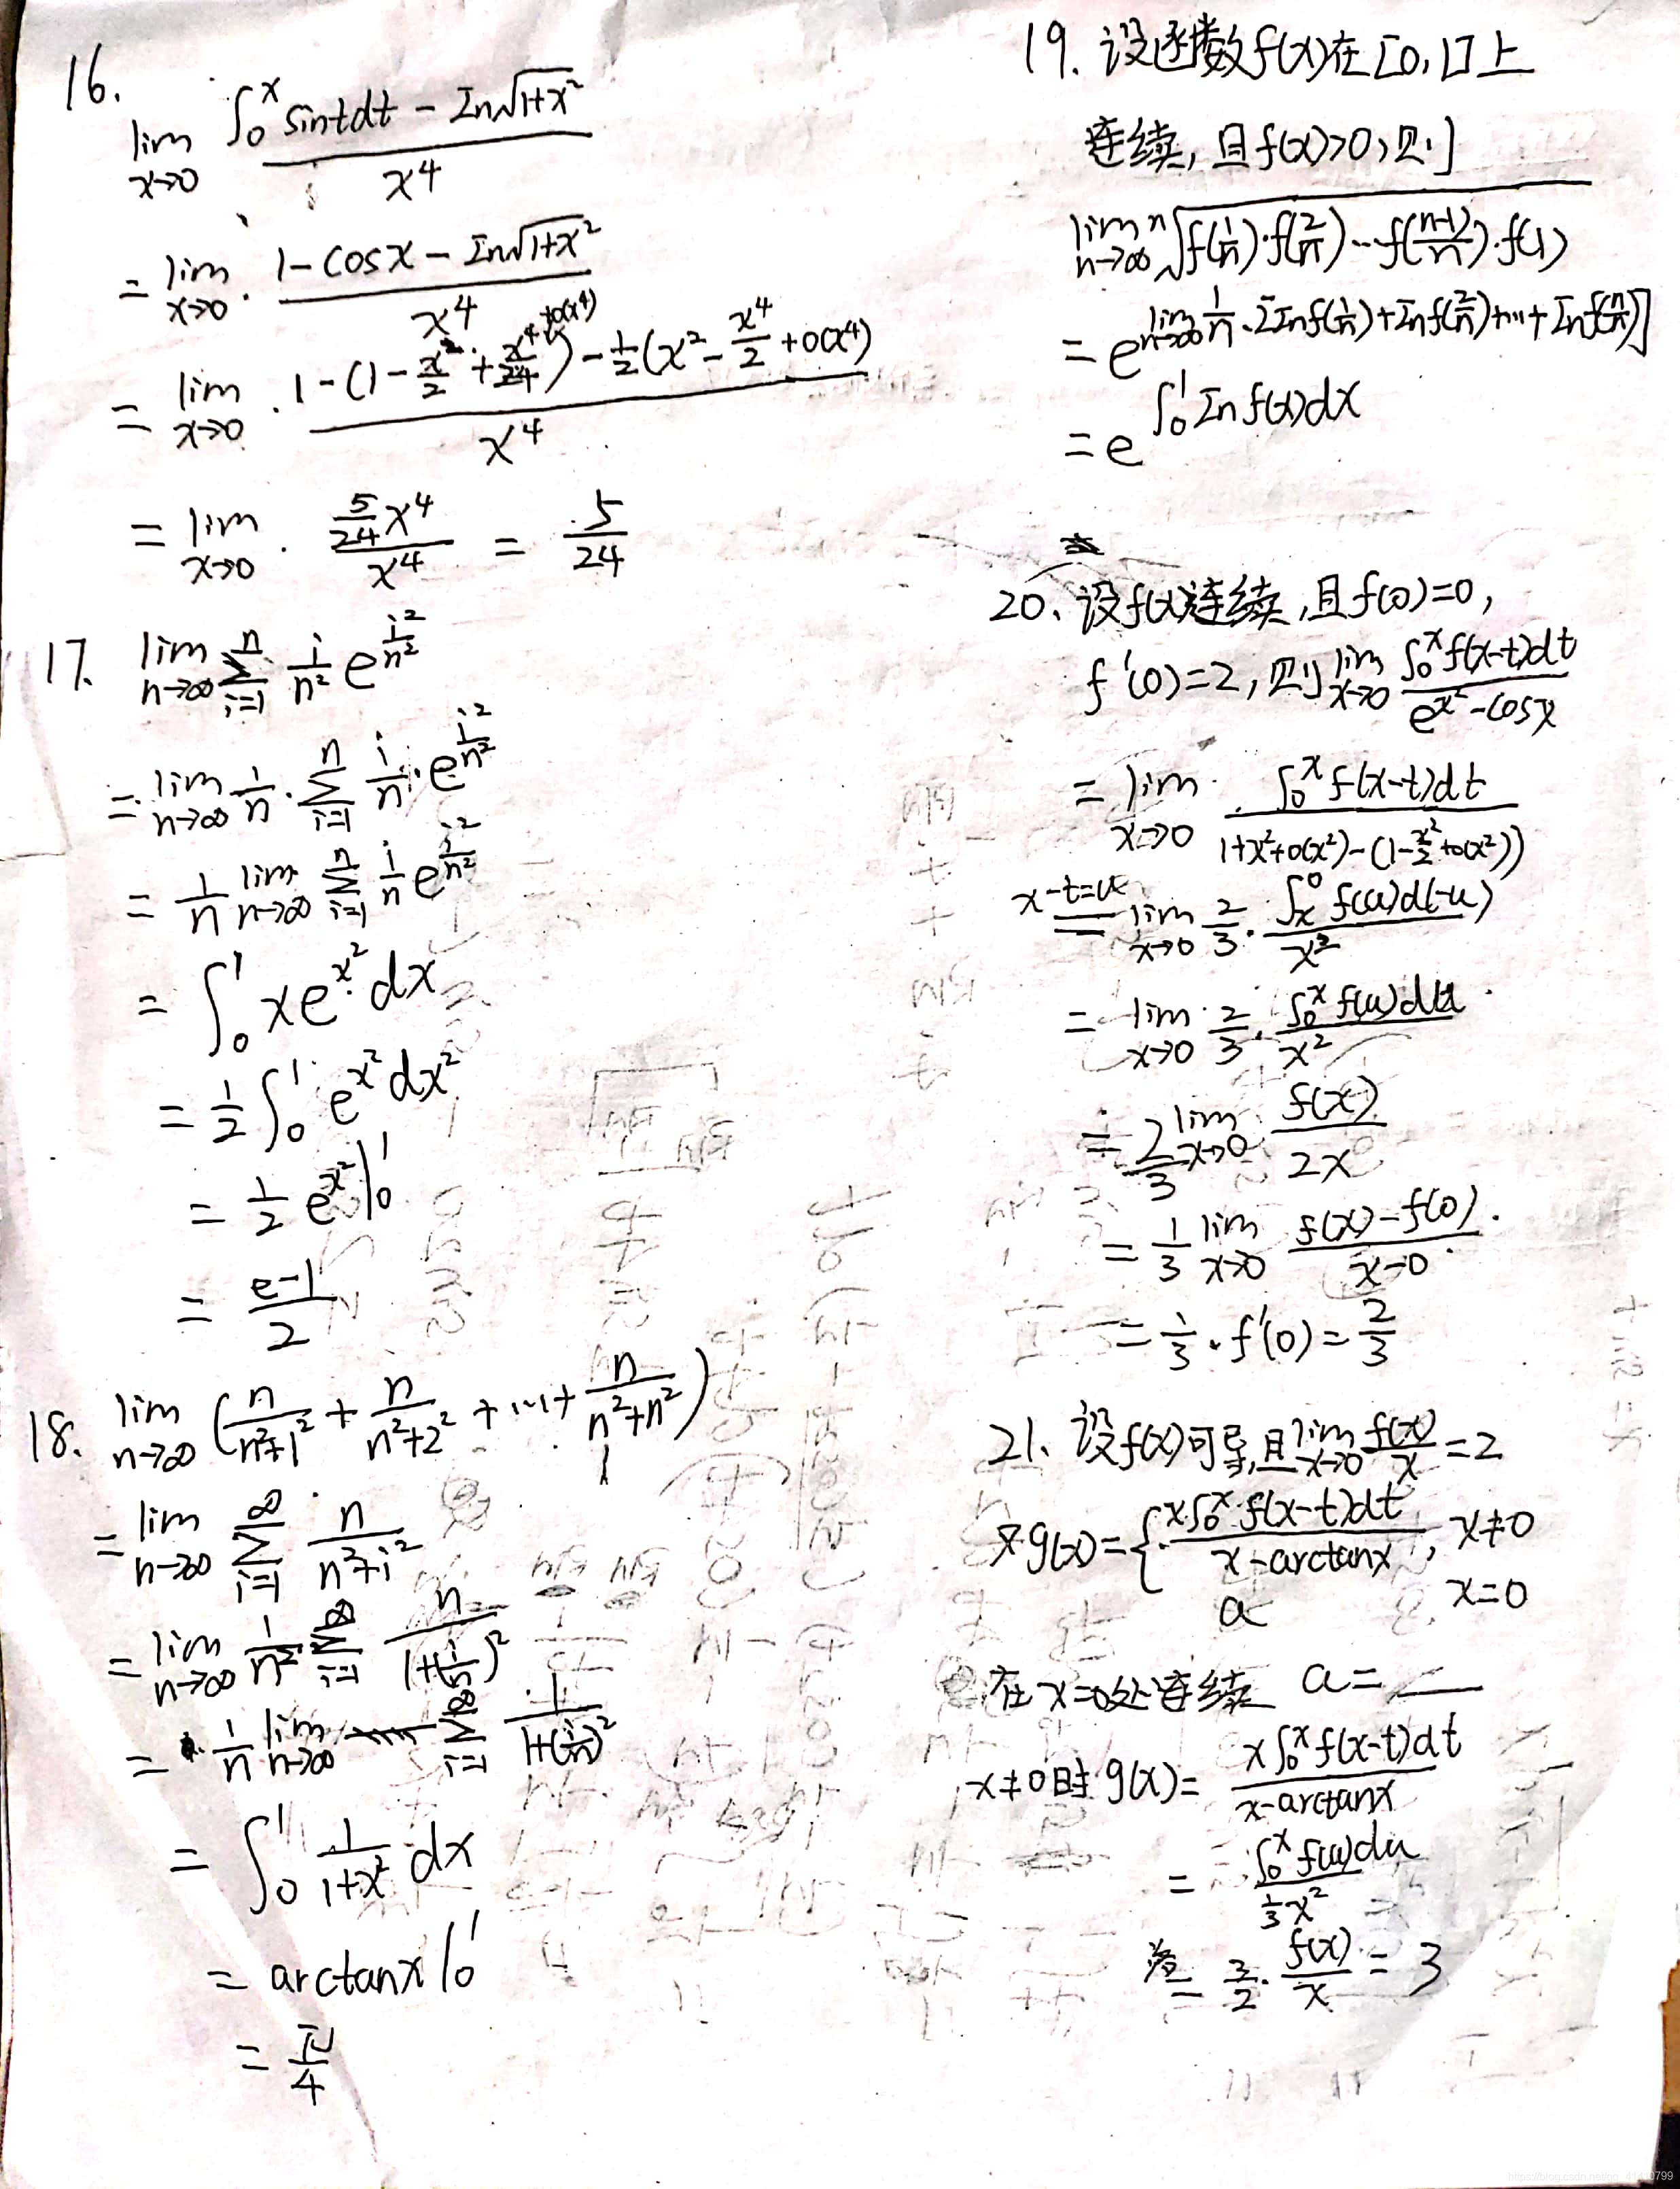 16.
lim_{x→0} (∫_0^x sint dt − In√(1+x²)) / x⁴
= lim_{x→0} · (1 − cosx − In√(1+x²)) / x⁴
= lim_{x→0} · (1 − (1 − x²/2 + x⁴/24 + o(x⁴)) − 1/2(x² − x⁴/2 + o(x⁴)) / x⁴
= lim_{x→0} · (5/24 x⁴) / x⁴ = 5/24
17. lim_{n→∞} Σ_{i=1}^n i/n² e^{i²/n²}
= lim_{n→∞} 1/n · Σ_{i=1}^n i/n · e^{i²/n²}
= 1/n lim_{n→∞} Σ_{i=1}^n i/n e^{i²/n²}
= ∫_0^1 x e^{x²} dx
= 1/2 ∫_0^1 e^{x²} dx²
= 1/2 e^{x²} |_0^1
= (e−1)/2
18. lim_{n→∞} (n/(n²+1²) + n/(n²+2²) + ... + n/(n²+n²))
= lim_{n→∞} Σ_{i=1}^∞ n/(n²+i²)
= lim_{n→∞} 1/n² Σ_{i=1}^∞ n/(1+(i/n)²)
= 1/n lim_{n→∞} Σ_{i=1}^∞ 1/(1+(i/n)²)
= ∫_0^1 1/(1+x²) dx
= arctanx |_0^1
= π/4
19. 设函数f(x)在[0,1]上
连续,且f(x)>0,则
lim_{n→∞} ⁿ√(f(1/n)·f(2/n)···f((n−1)/n)·f(1))
= e^{lim_{n→∞} 1/n · [In f(1/n) + In f(2/n) + ... + In f(n/n)]}
= e^{∫_0^1 In f(x)dx}
20. 设f(x)连续,且f(0)=0,
f′(0)=2,则 lim_{x→0} ∫_0^x f(x−t)dt / (e^{x²} − cosx)
= lim_{x→0} ∫_0^x f(x−t)dt / (1+x²+o(x²)−(1−x²/2+o(x²)))
x−t=u = lim_{x→0} 2/3 · ∫_x^0 f(u)d(−u) / x²
= lim_{x→0} 2/3 · ∫_0^x f(u)du / x²
= 2/3 lim_{x→0} f(x)/2x
= 1/3 lim_{x→0} (f(x)−f(0))/(x−0)
= 1/3 · f′(0) = 2/3
21. 设f(x)可导,且lim_{x→0} f(x)/x = 2
又g(x) = { x∫_0^x f(x−t)dt / (x−arctanx), x≠0
a x=0
在x=0处连续 a=__
x≠0时 g(x) = x∫_0^x f(x−t)dt / (x−arctanx)
= ∫_0^x f(u)du / (1/3 x²)
= 3/2 · f(x)/x = 3